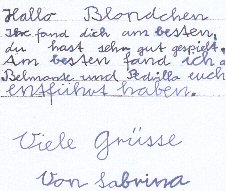 Hallo Blondchen
Ihr fand dich am besten,
du hast sehr gut gespielt.
Am besten fand ich
Belmonte und Pedillo euch
entführt haben.
Viele Grüsse
Von Sabrina